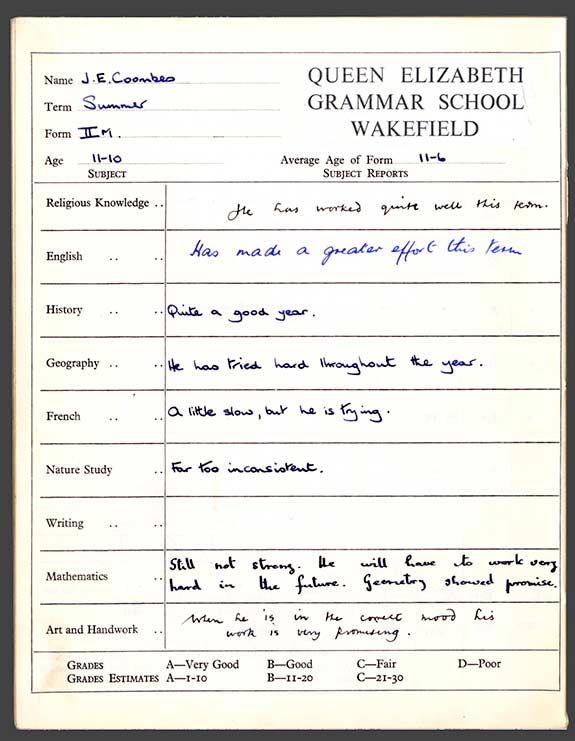 QUEEN ELIZABETH
GRAMMAR SCHOOL
WAKEFIELD
Name J.E. Coombes
Term Summer
Form II M.
Age 11-10 Average Age of Form 11-6
SUBJECT SUBJECT REPORTS
Religious Knowledge .. He has worked quite well this term.
English .. .. Has made a greater effort this term
History .. .. Quite a good year.
Geography .. .. He has tried hard throughout the year.
French .. .. A little slow, but he is trying.
Nature Study .. Far too inconsistent.
Writing .. ..
Mathematics .. Still not strong. He will have to work very
hard in the future. Geometry showed promise.
Art and Handwork .. When he is in the correct mood his
work is very promising.
GRADES A—Very Good B—Good C—Fair D—Poor
GRADES ESTIMATES A—1-10 B—11-20 C—21-30